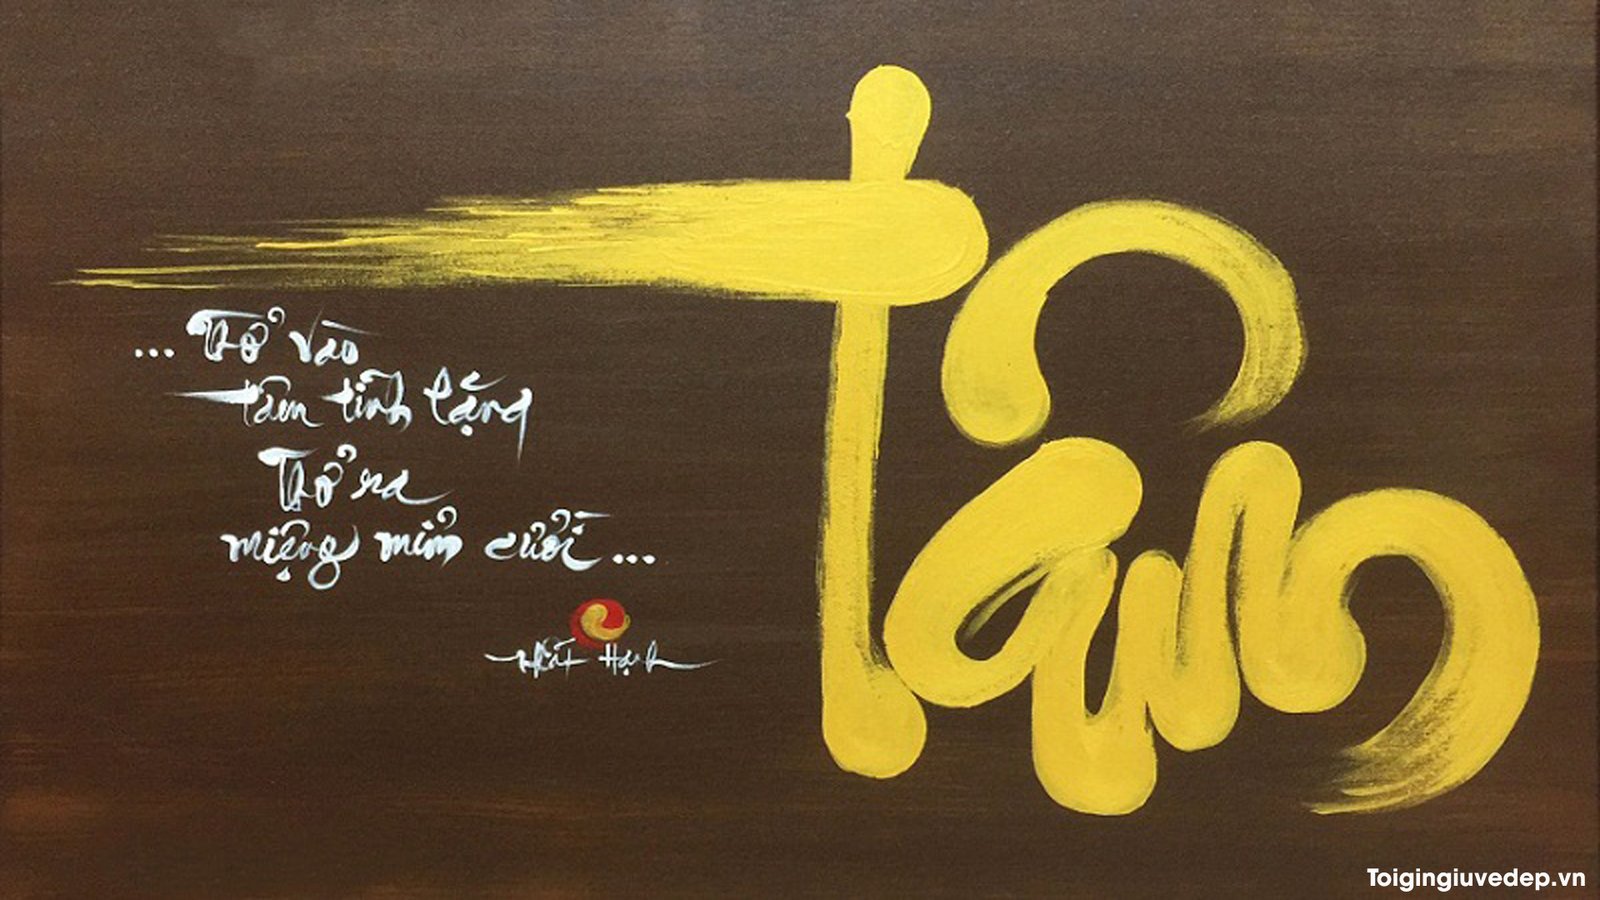 Tâm
... Thở vào
tâm tĩnh lặng
Thở ra
miệng mỉm cười ...
Nhất Hạnh
Toigingiuvedep.vn